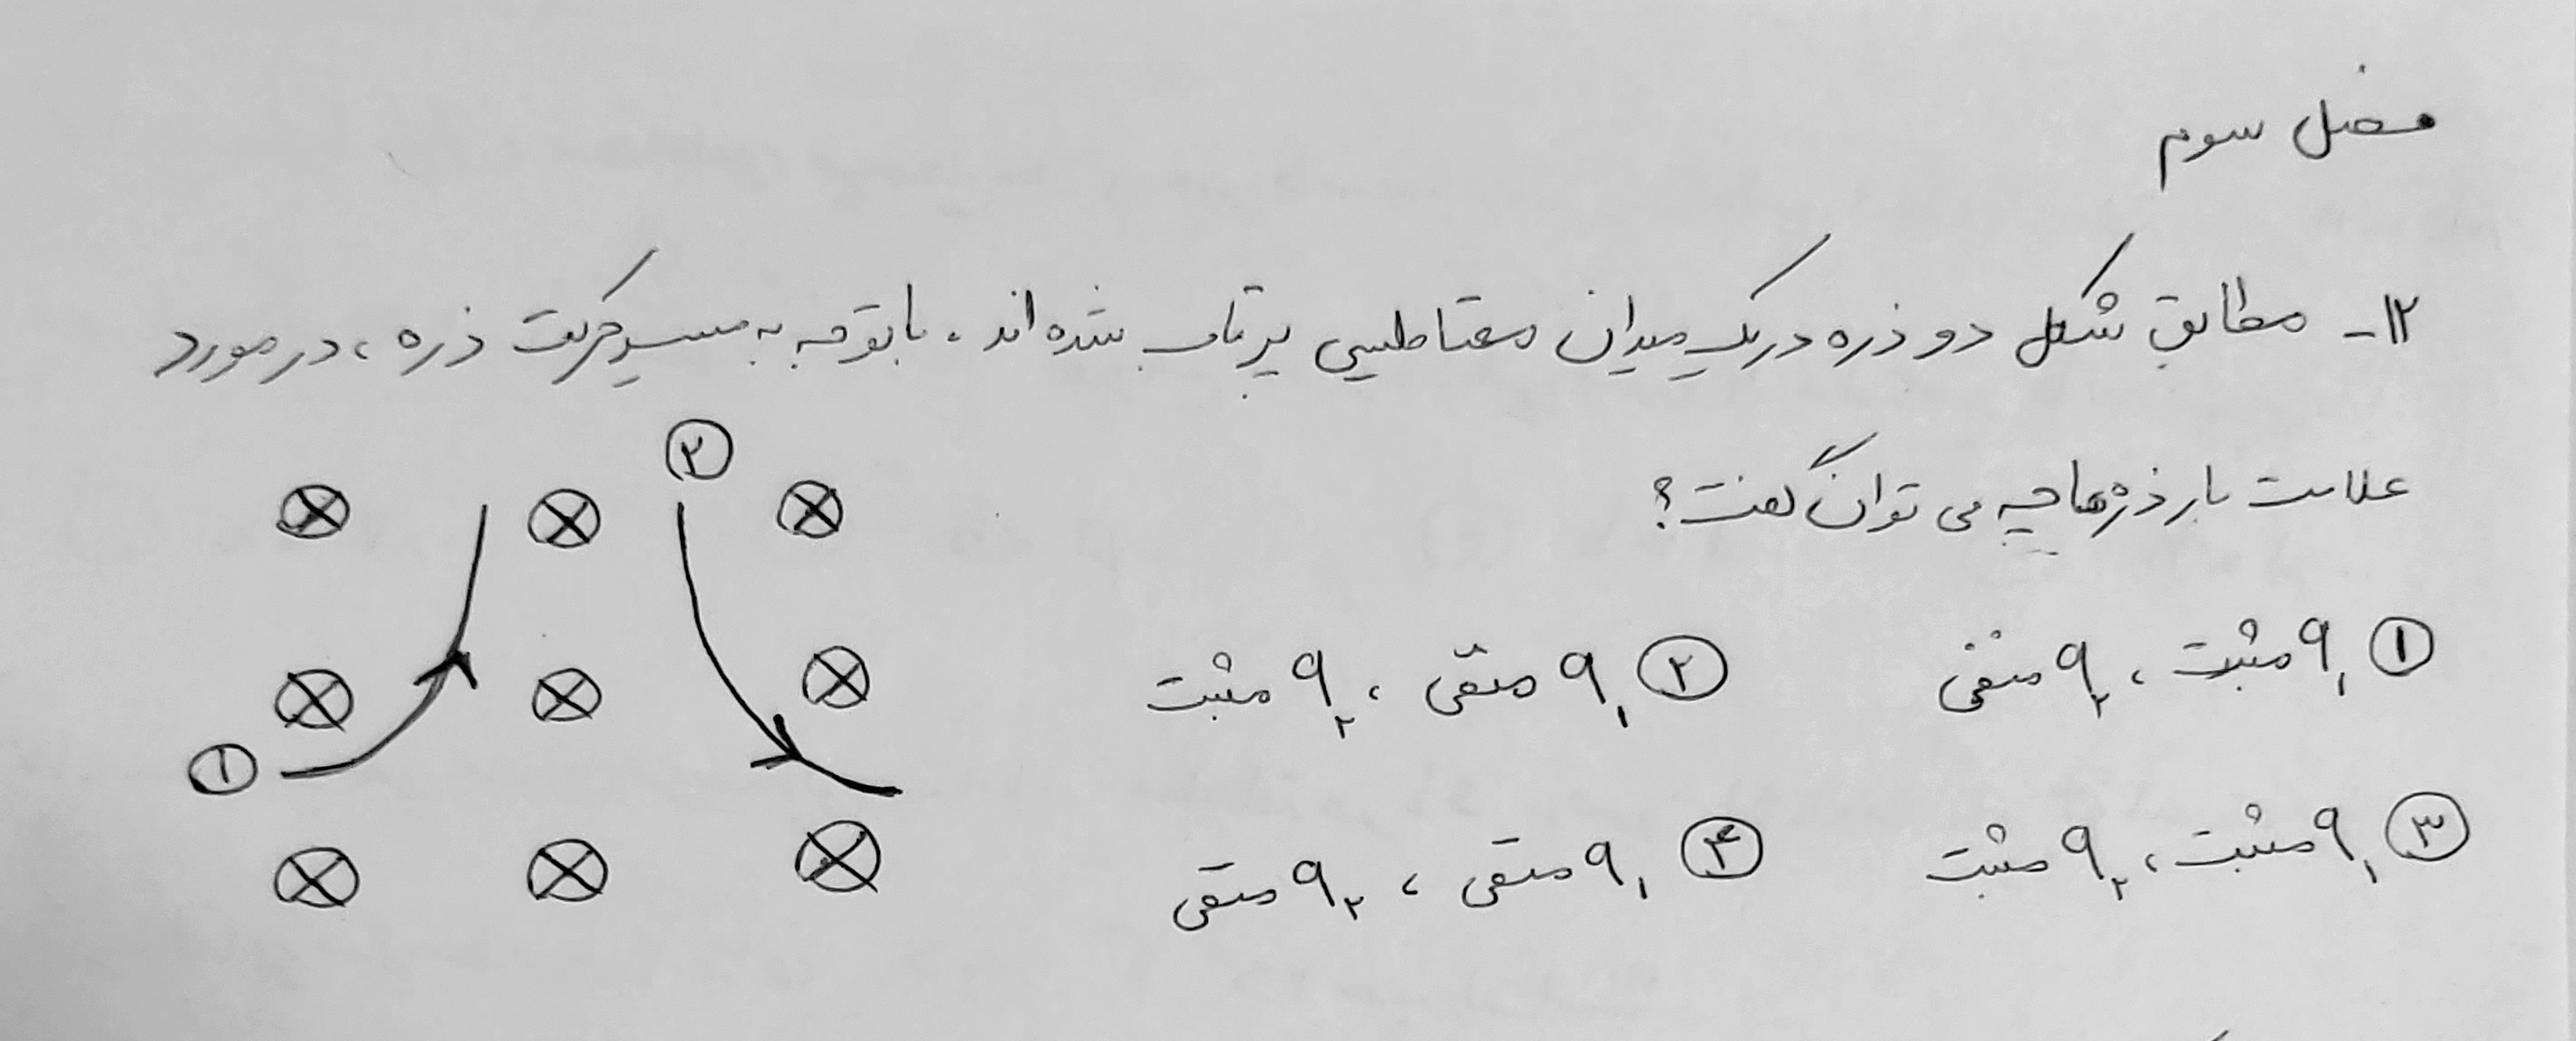 فصل سوم
۱۲- مطابق شکل دو ذره در یک میدان مغناطیسی پرتاب شده‌اند. با توجه به مسیر حرکت ذره، در مورد
علامت بار ذره‌ها چه می توان گفت؟
① q₁ مثبت، q₂ منفی
② q₁ منفی، q₂ مثبت
③ q₁ مثبت، q₂ مثبت
④ q₁ منفی، q₂ منفی
②
①